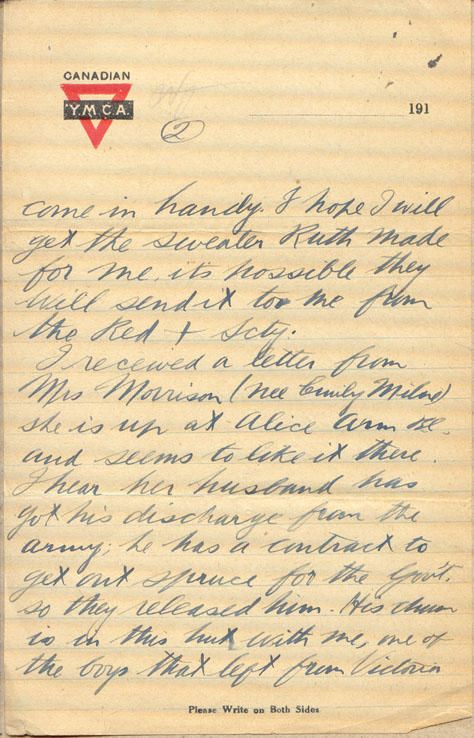 CANADIAN
Y.M.C.A.
191
2
come in handy. I hope I will
get the sweater Ruth made
for me, its possible they
will send it to me from
the Red + Scty.
I received a letter from
Mrs Morrison (nee Emily Milne)
she is up at Alice Arm
and seems to like it there.
I hear her husband has
got his discharge from the
army; he has a contract to
get out spruce for the Gov't.
so they released him. His chum
is in this hut with me, one of
the boys that left from Victoria
Please Write on Both Sides